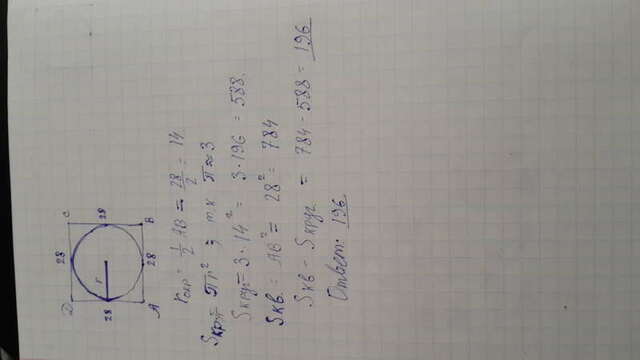 28
D C
28 r 28
A 28 B
rокр = 1/2 AB = 28/2 = 14.
Sкруг = πr² ; т.к. π≈3
Sкруг = 3·14² = 3·196 = 588.
Sкв. = AB² = 28² = 784
Sкв - Sкруг. = 784 - 588 = 196
Ответ: 196